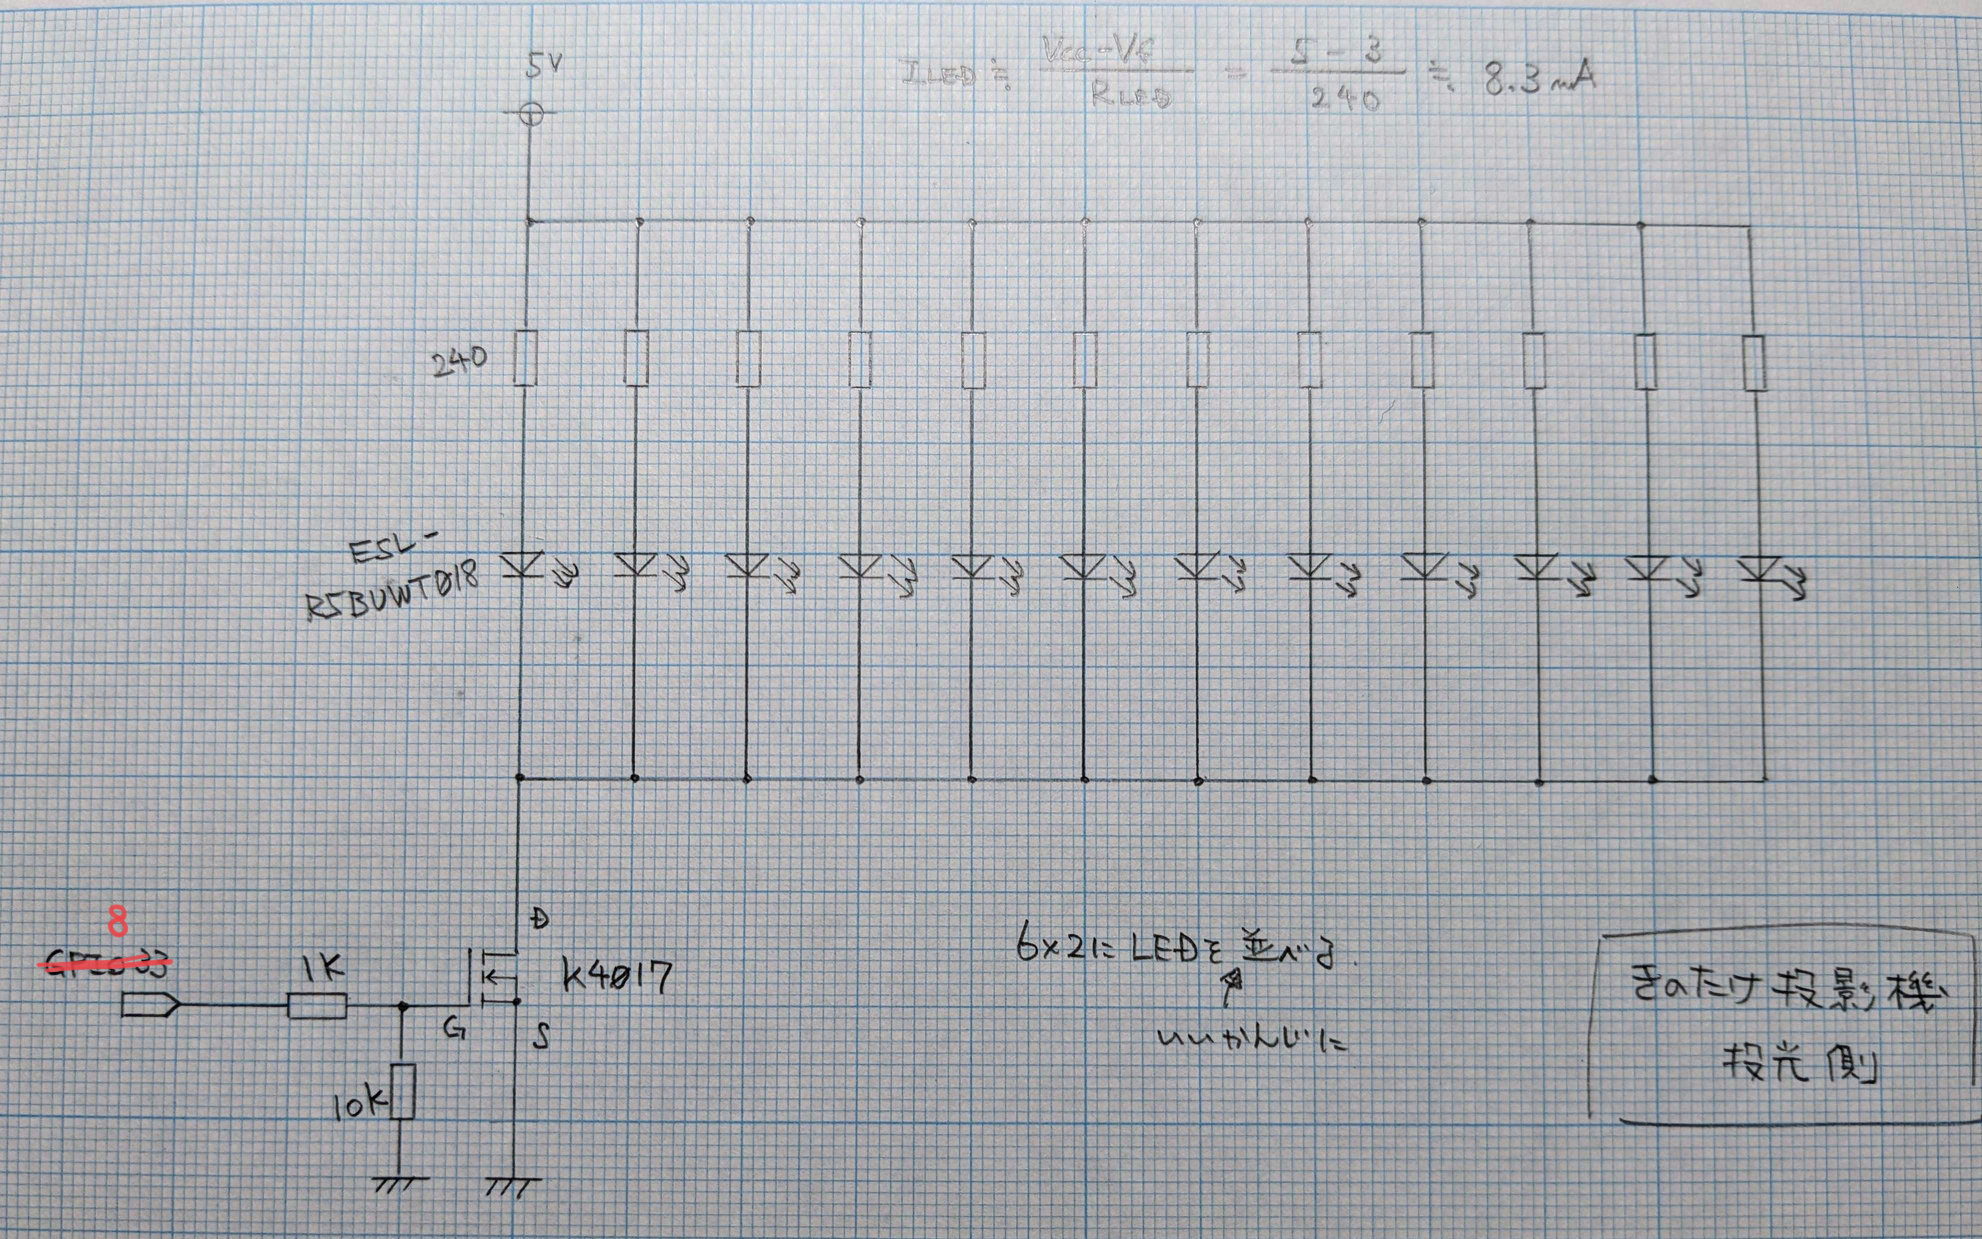 5V
ILED ≒ Vcc-Vf / RLED = 5-3 / 240 ≒ 8.3mA
240
ESL-
R5BUWT018
8
GPIO33
1K
G
D
S
K4017
10K
6x2に LEDを 並べる.
いいかんじに
きのたけ投影機
投光側